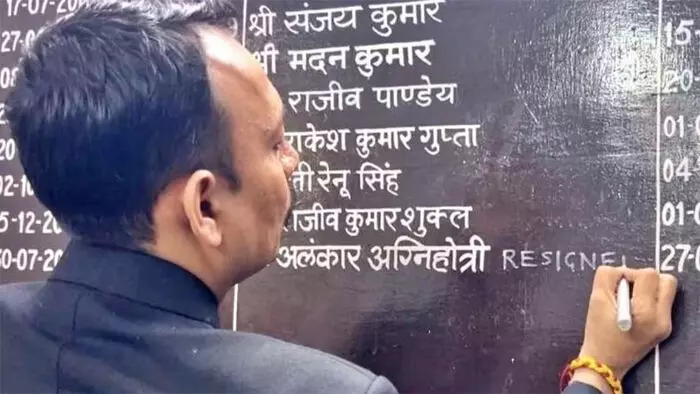 17-07-20
श्री संजय कुमार 15-
27-0 श्री मदन कुमार 20-
08 राजीव पाण्डेय 01-0
20 राकेश कुमार गुप्ता 04-
02-10 रेनू सिंह
5-12-20 राजीव कुमार शुक्ल 01-0
30-07-20 अलंकार अग्निहोत्री RESIGNE 27-0